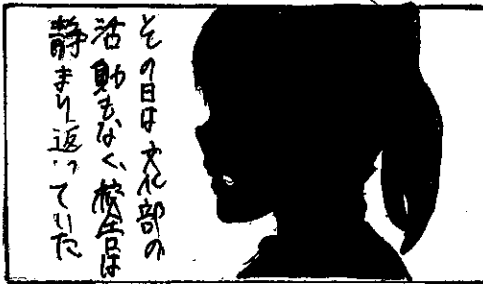 その日は文化部の
活動もなく、校舎は
静まり返っていた